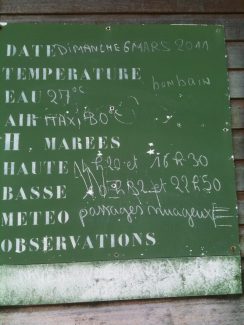 DATE DIMANCHE 6 MARS 2011
TEMPERATURE
EAU 27°C bon bain
AIR MAX, 30°C
H. MAREES
HAUTE et 16H30
BASSE et 22H50
METEO passages nuageux
OBSERVATIONS